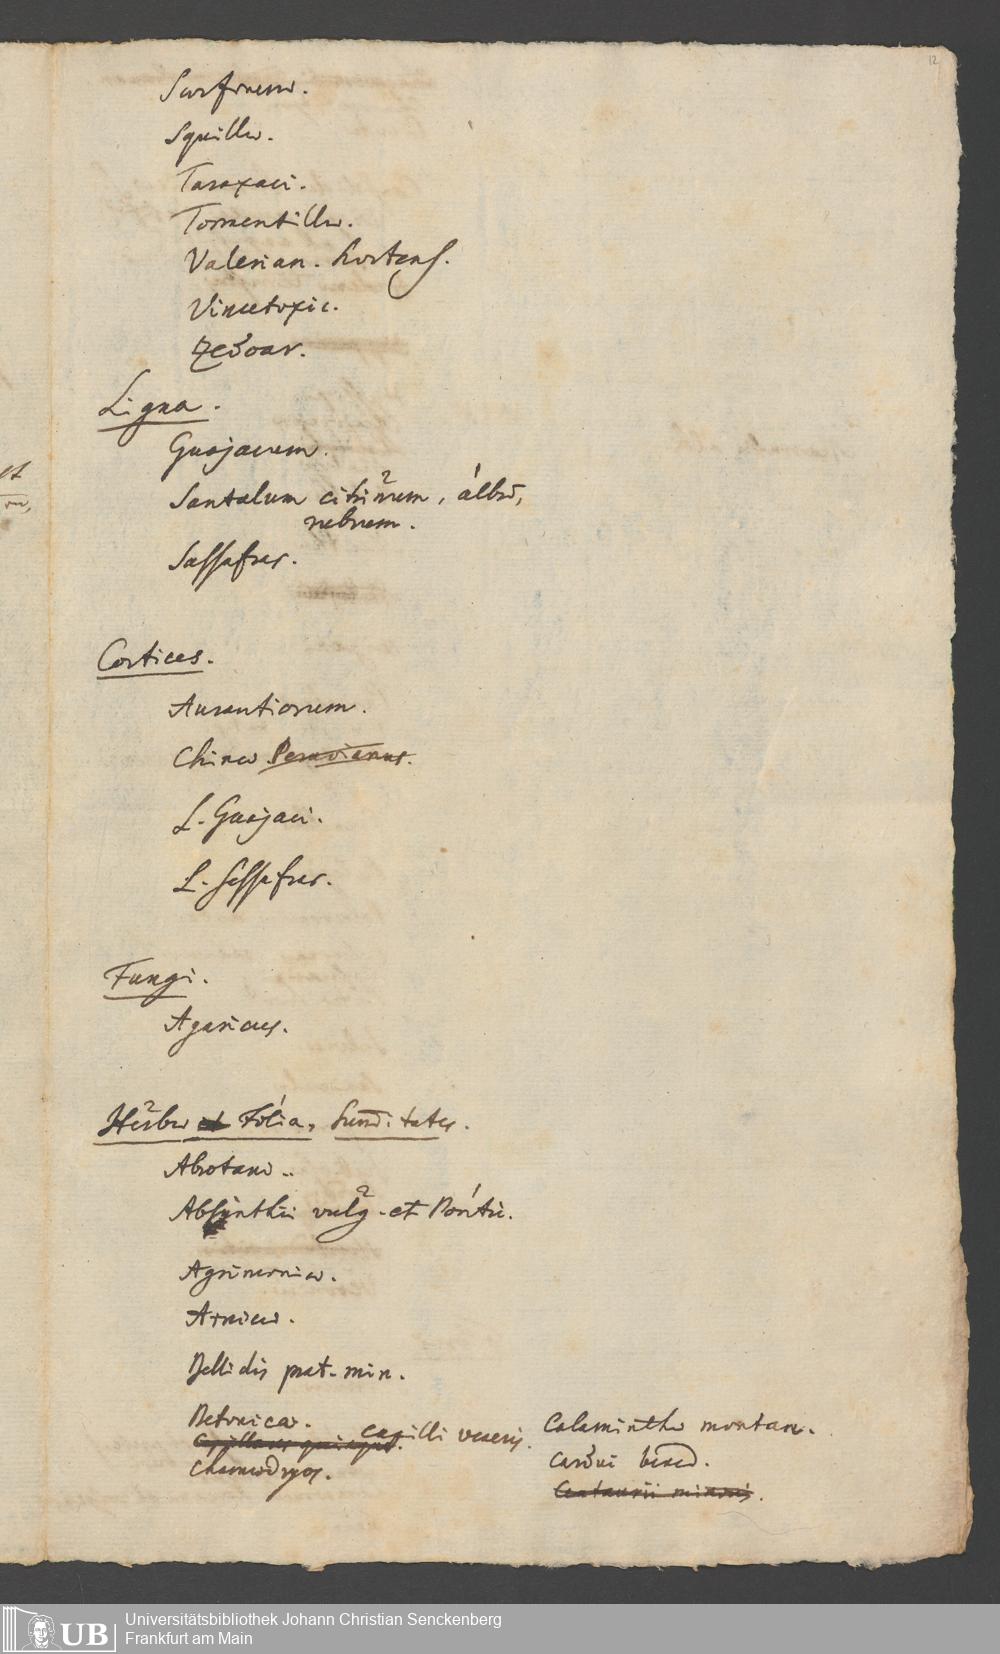 12
Squillæ.
Taraxaci.
Tormentillæ.
Valerian. hortens.
Vincetoxic.
Zedoar.
Ligna.
Guajacum.
Santalum citrinum, album,
rubrum.
Sassafras.
Cortices.
Aurantiorum.
Chinæ Peruvianus.
L. Guajaci.
L. Sassafras.
Fungi.
Agaricus.
Herbæ et Folia, Sum̄itates.
Abrotani.
Absynthii vulg. et Pontic.
Agrimoniæ.
Arnicæ.
Bellidis prat. min.
Betonicæ.
Capillares quinque. capilli veneris.
Chamædryos.
Calaminthæ montan.
Cardui bened.
Centaurii minoris.
et
UB
Universitätsbibliothek Johann Christian Senckenberg
Frankfurt am Main